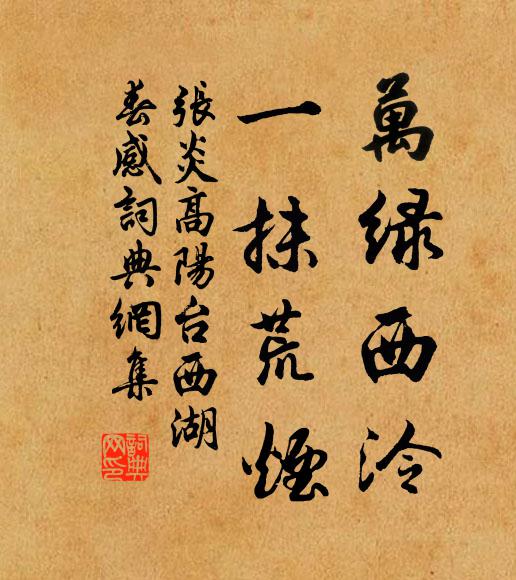 萬緑西泠
一抹荒煙
張炎高陽台西湖
春感詞典網集
詞典
网印